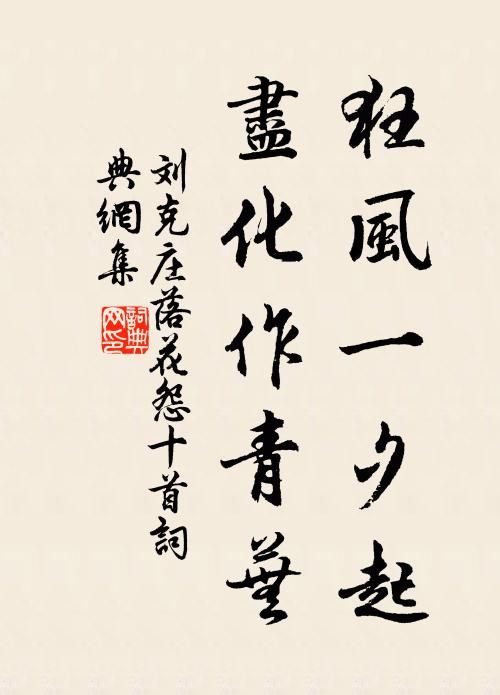 狂風一夕起
盡化作青蕪
刘克庄落花怨十首詞
典網集
詞典网印